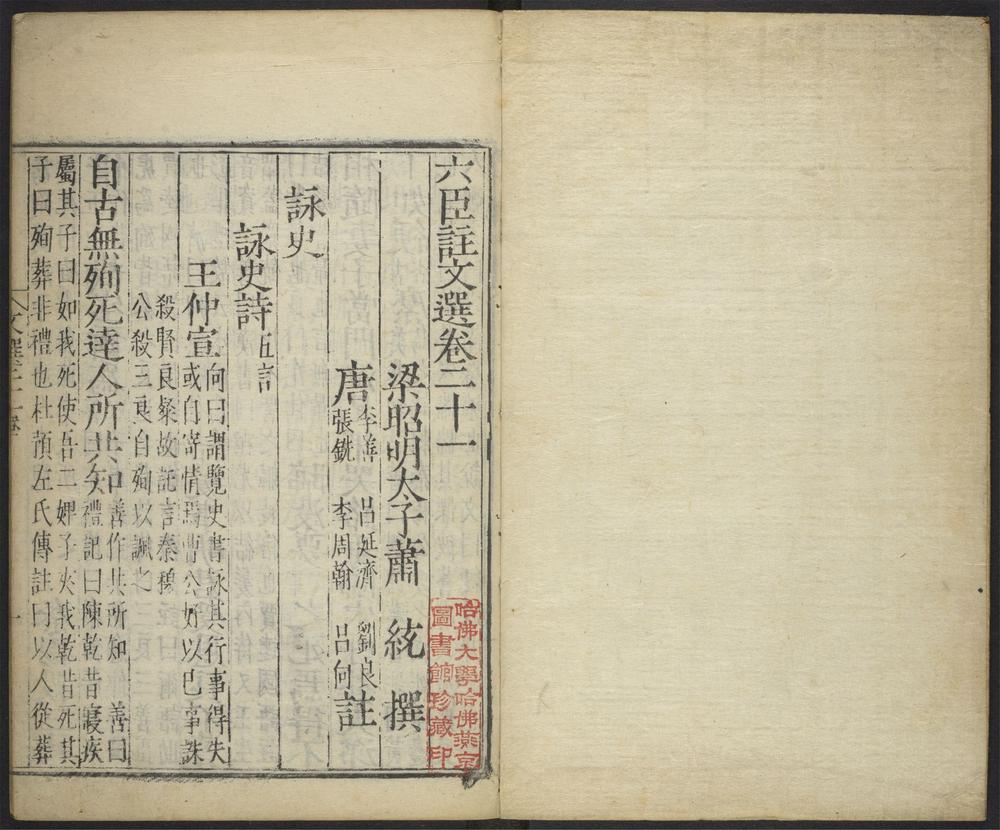 六臣註文選卷二十一
梁昭明太子蕭 統 撰
唐李善 呂延濟 劉良
張銑 李周翰 呂向註
詠史
詠史詩五言
王仲宣向曰謂覽史書詠其行事得失
或自寄情焉曹公好以己事誅
殺賢良粲故託言秦穆
公殺三良自殉以諷之
自古無殉死達人所共知善作共所知 善曰
禮記曰陳乾昔寢疾
屬其子曰如我死使吾二婢子夾我乾昔死其
子曰殉葬非禮也杜預左氏傳註曰以人從葬
文選二十一卷 一
哈佛大學哈佛燕京
圖書館珍藏印